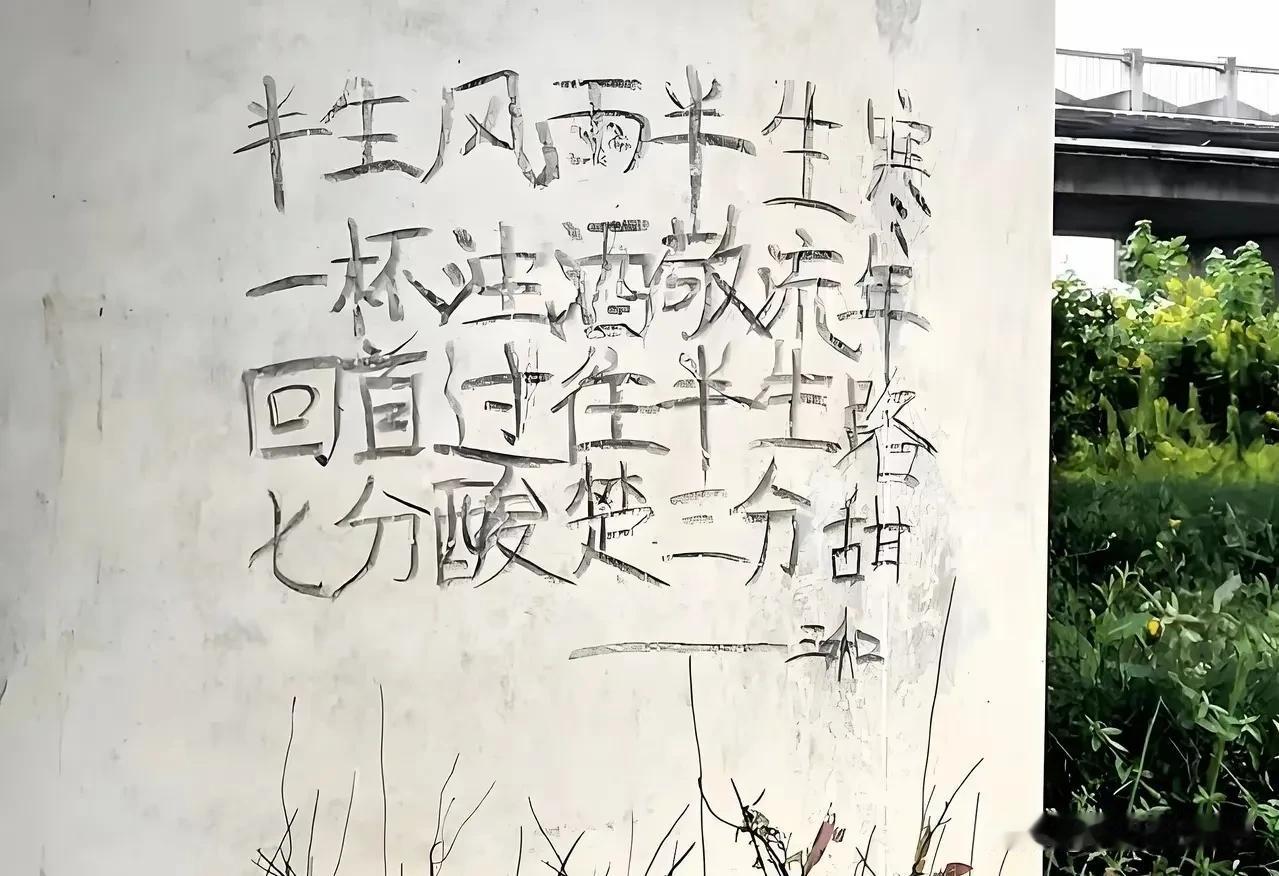 半生风雨半生寒
一杯浊酒敬流年
回首过往半生路
七分酸楚三分甜